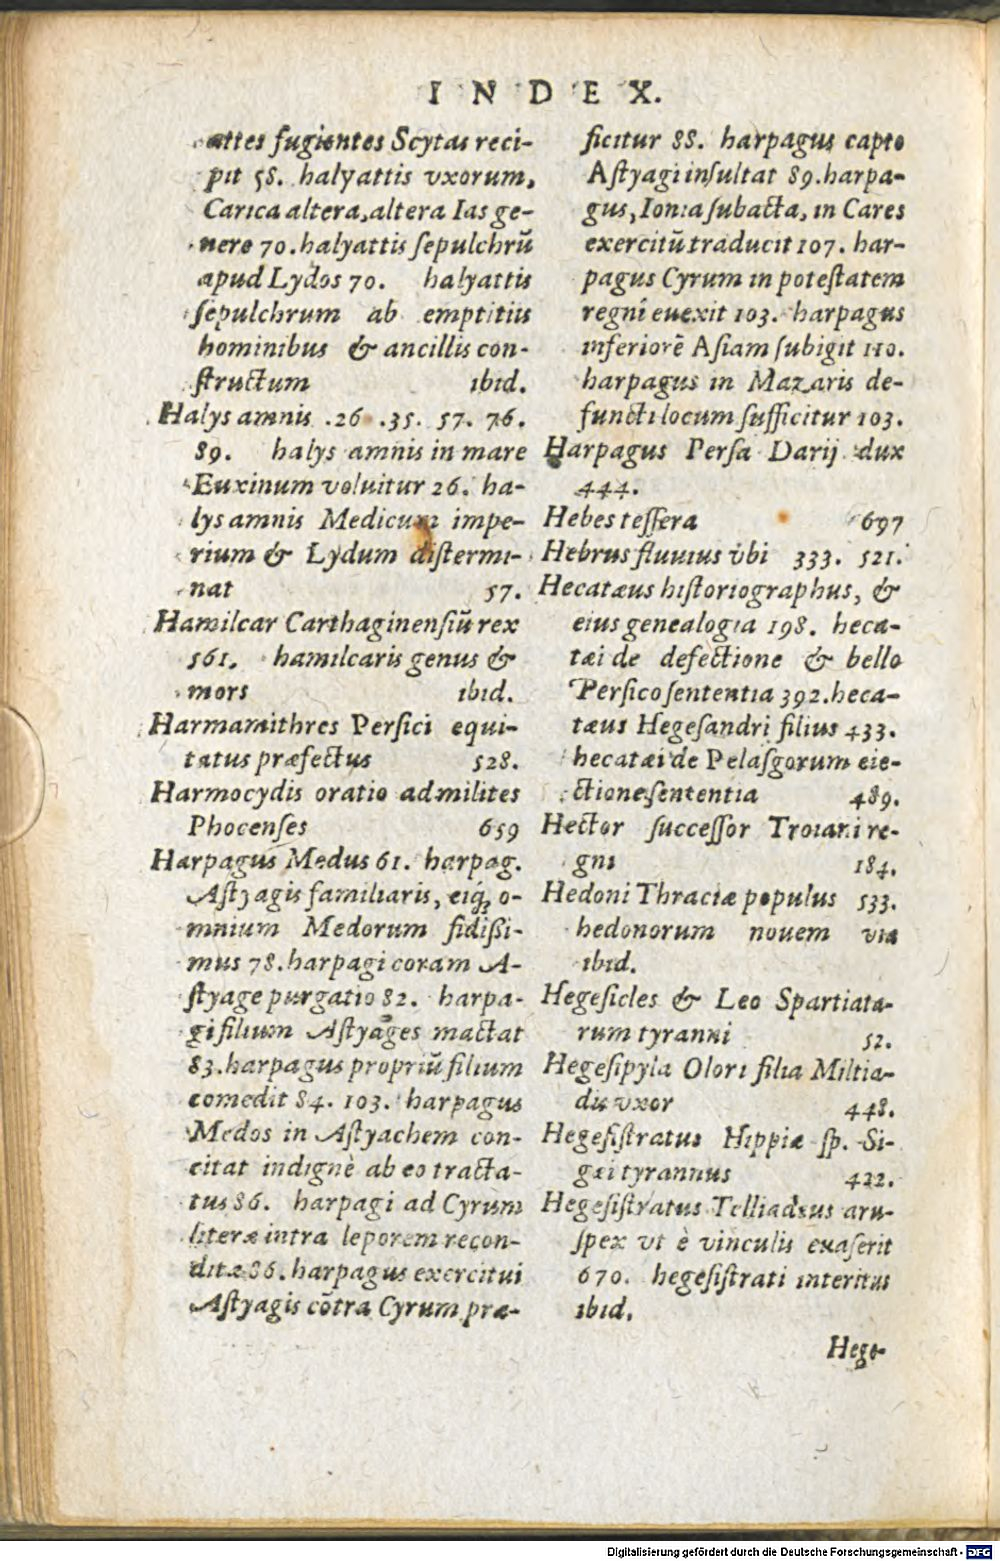 INDEX.
attes fugientes Scytas reci-
pit 58. halyattis vxorum,
Carica altera, altera Ias ge-
nere 70. halyattis ſepulchrũ
apud Lydos 70. halyattis
ſepulchrum ab emptitiis
hominibus & ancillis con-
ſtructum ibid.
Halys amnis .26 .35. 57. 76.
89. halys amnis in mare
Euxinum voluitur 26. ha-
lys amnis Medicum impe-
rium & Lydum diſtermi-
nat 57.
Hamilcar Carthaginenſiũ rex
561. hamilcaris genus &
mors ibid.
Harmamithres Perſici equi-
tatus præfectus 528.
Harmocydis oratio ad milites
Phocenſes 659
Harpagus Medus 61. harpag.
Aſtyagis familiaris, eiq́; o-
mnium Medorum fidißi-
mus 78. harpagi coram A-
ſtyage purgatio 82. harpa-
gi filium Aſtyages mactat
83. harpagus propriũ filium
comedit 84. 103. harpagus
Medos in Aſtyachem con-
citat indignè ab eo tracta-
tus 86. harpagi ad Cyrum
literæ intra leporem recon-
ditæ 86. harpagus exercitui
Aſtyagis cõtra Cyrum præ-
ficitur 88. harpagus capto
Aſtyagi inſultat 89. harpa-
gus, Ionia ſubacta, in Cares
exercitũ traducit 107. har-
pagus Cyrum in poteſtatem
regni euexit 103. harpagus
inferiorẽ Aſiam ſubigit 110.
harpagus in Mazaris de-
functi locum ſufficitur 103.
Harpagus Perſa Darij dux
444.
Hebes teſſera 697
Hebrus fluuius vbi 333. 521.
Hecatæus hiſtoriographus, &
eius genealogia 198. heca-
tæi de defectione & bello
Perſico ſententia 392. heca-
tæus Hegeſandri filius 433.
hecatæi de Pelaſgorum eie-
ctione ſententia 489.
Hector ſucceſſor Troiani re-
gni 184.
Hedoni Thraciæ populus 533.
hedonorum nouem via
ibid.
Hegeſicles & Leo Spartiata-
rum tyranni 52.
Hegeſipyla Olori filia Miltia-
dis vxor 448.
Hegeſiſtratus Hippiæ ſp. Si-
gæi tyrannus 422.
Hegeſiſtratus Telliadeus aru-
ſpex vt è vinculis euaſerit
670. hegeſiſtrati interitus
ibid.
Hege-
Digitalisierung gefördert durch die Deutsche Forschungsgemeinschaft - DFG